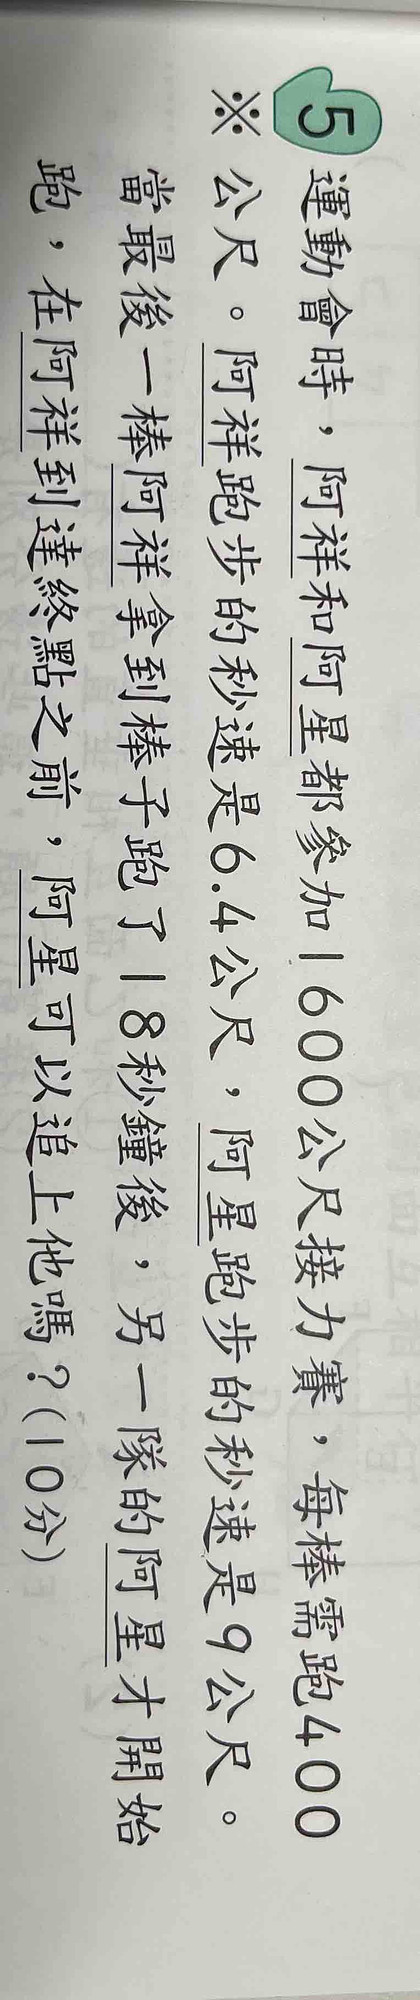 5 運動會時，阿祥和阿星都參加1600公尺接力賽，每棒需跑400
※ 公尺。阿祥跑步的秒速是6.4公尺，阿星跑步的秒速是9公尺。
當最後一棒阿祥拿到棒子跑了18秒鐘後，另一隊的阿星才開始
跑，在阿祥到達終點之前，阿星可以追上他嗎？(10分)